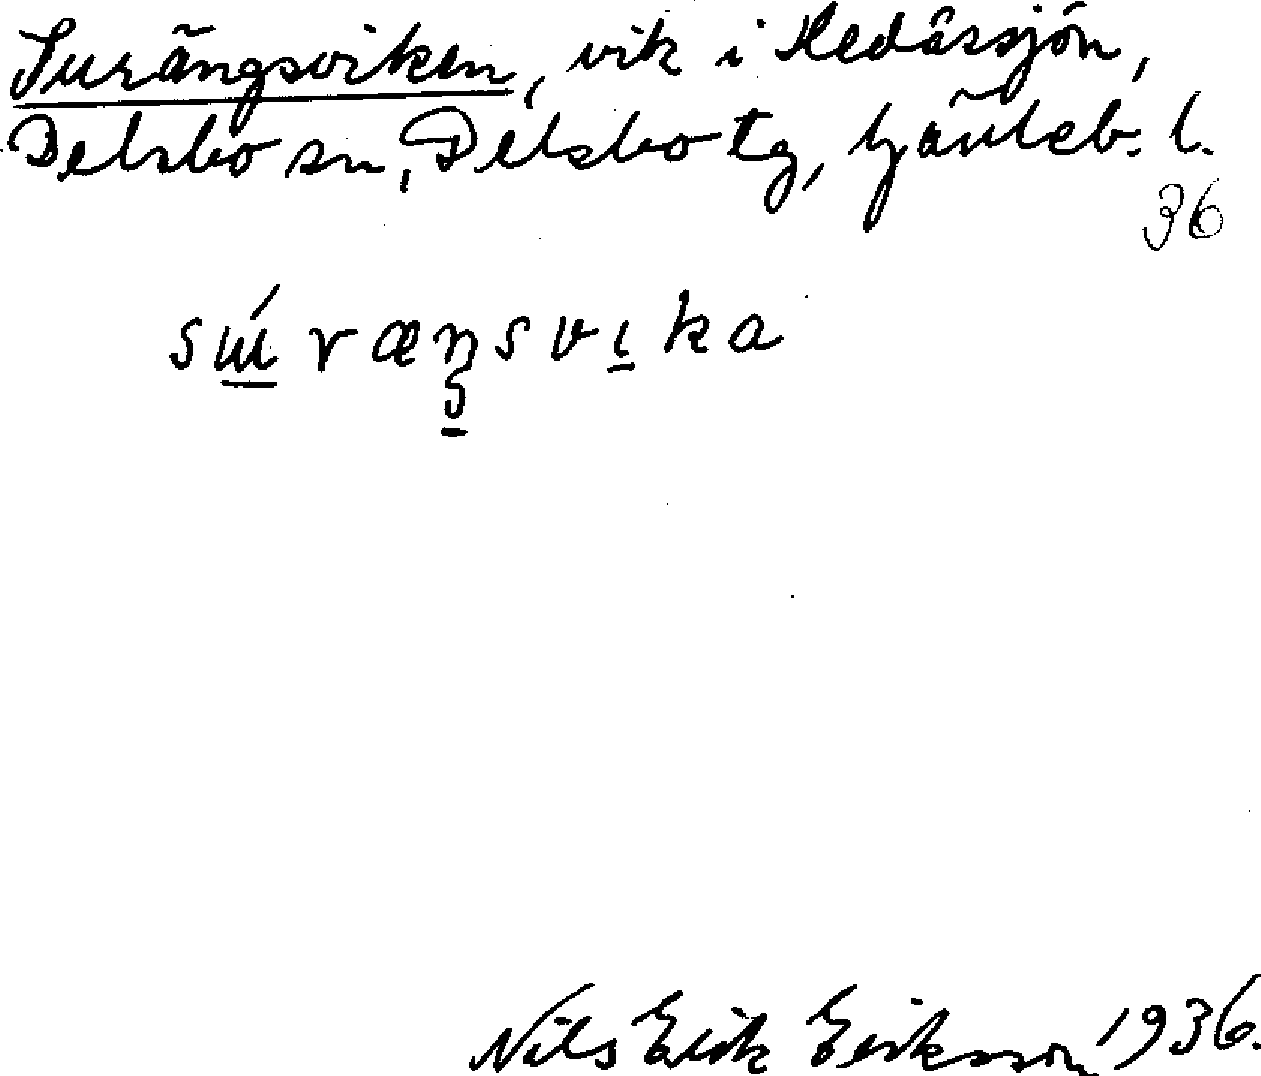 Surängsviken, vik i Hedåssjön,
Delsbo sn, Delsbo tg, Gävleb. l.
36
sɯ́ræŋsvıka
Nils Erik Eriksson 1936.